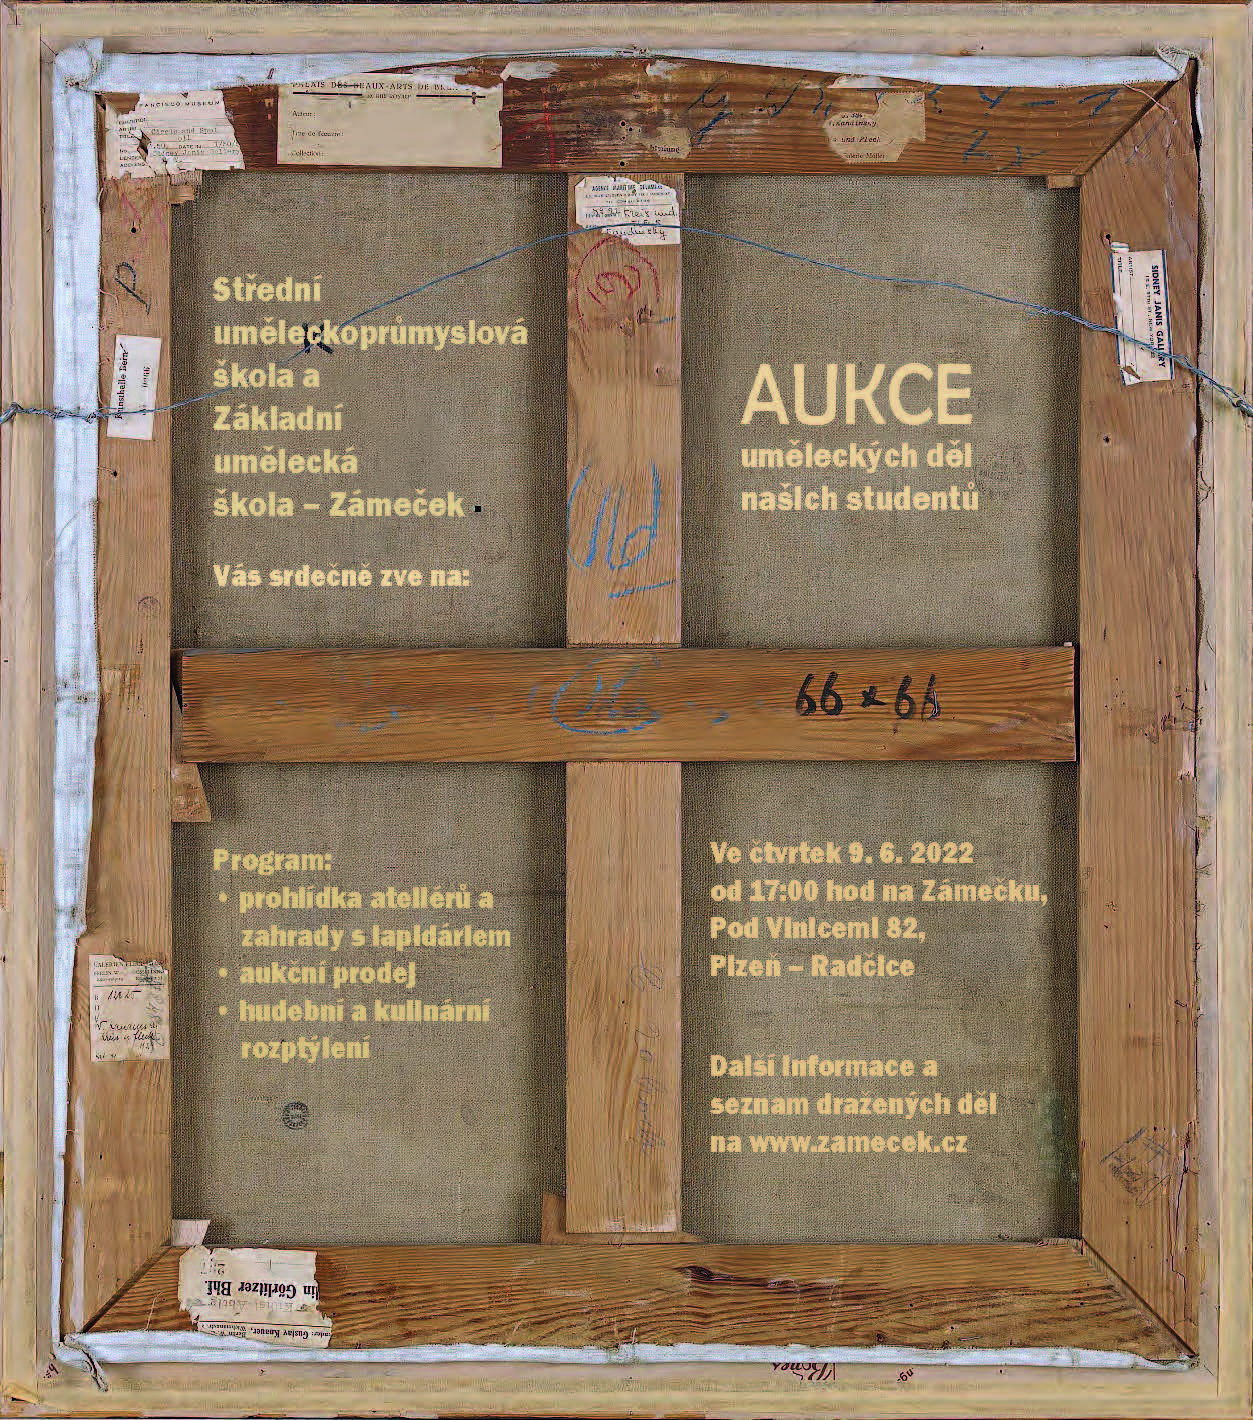 PALAIS DES BEAUX-ARTS DE
Auteur:
Titre de l'œuvre:
Collection:
FRANCISCO MUSEUM
Sidney Janis Gallery
Kandinsky
und Fleck
AGENCE MARITIME DELAMARE
Kandinsky
SIDNEY JANIS GALLERY
Kunsthalle
Střední
uměleckoprůmyslová
škola a
Základní
umělecká
škola – Zámeček
Vás srdečně zve na:
AUKCE
uměleckých děl
našich studentů
66 x 66
Program:
• prohlídka ateliérů a
zahrady s lapidáriem
• aukční prodej
• hudební a kulinární
rozptýlení
Ve čtvrtek 9. 6. 2022
od 17:00 hod na Zámečku,
Pod Vinicemi 82,
Plzeň – Radčice
Další informace a
seznam dražených děl
na www.zamecek.cz
Görlitzer Bhf.
Gustav Knauer,